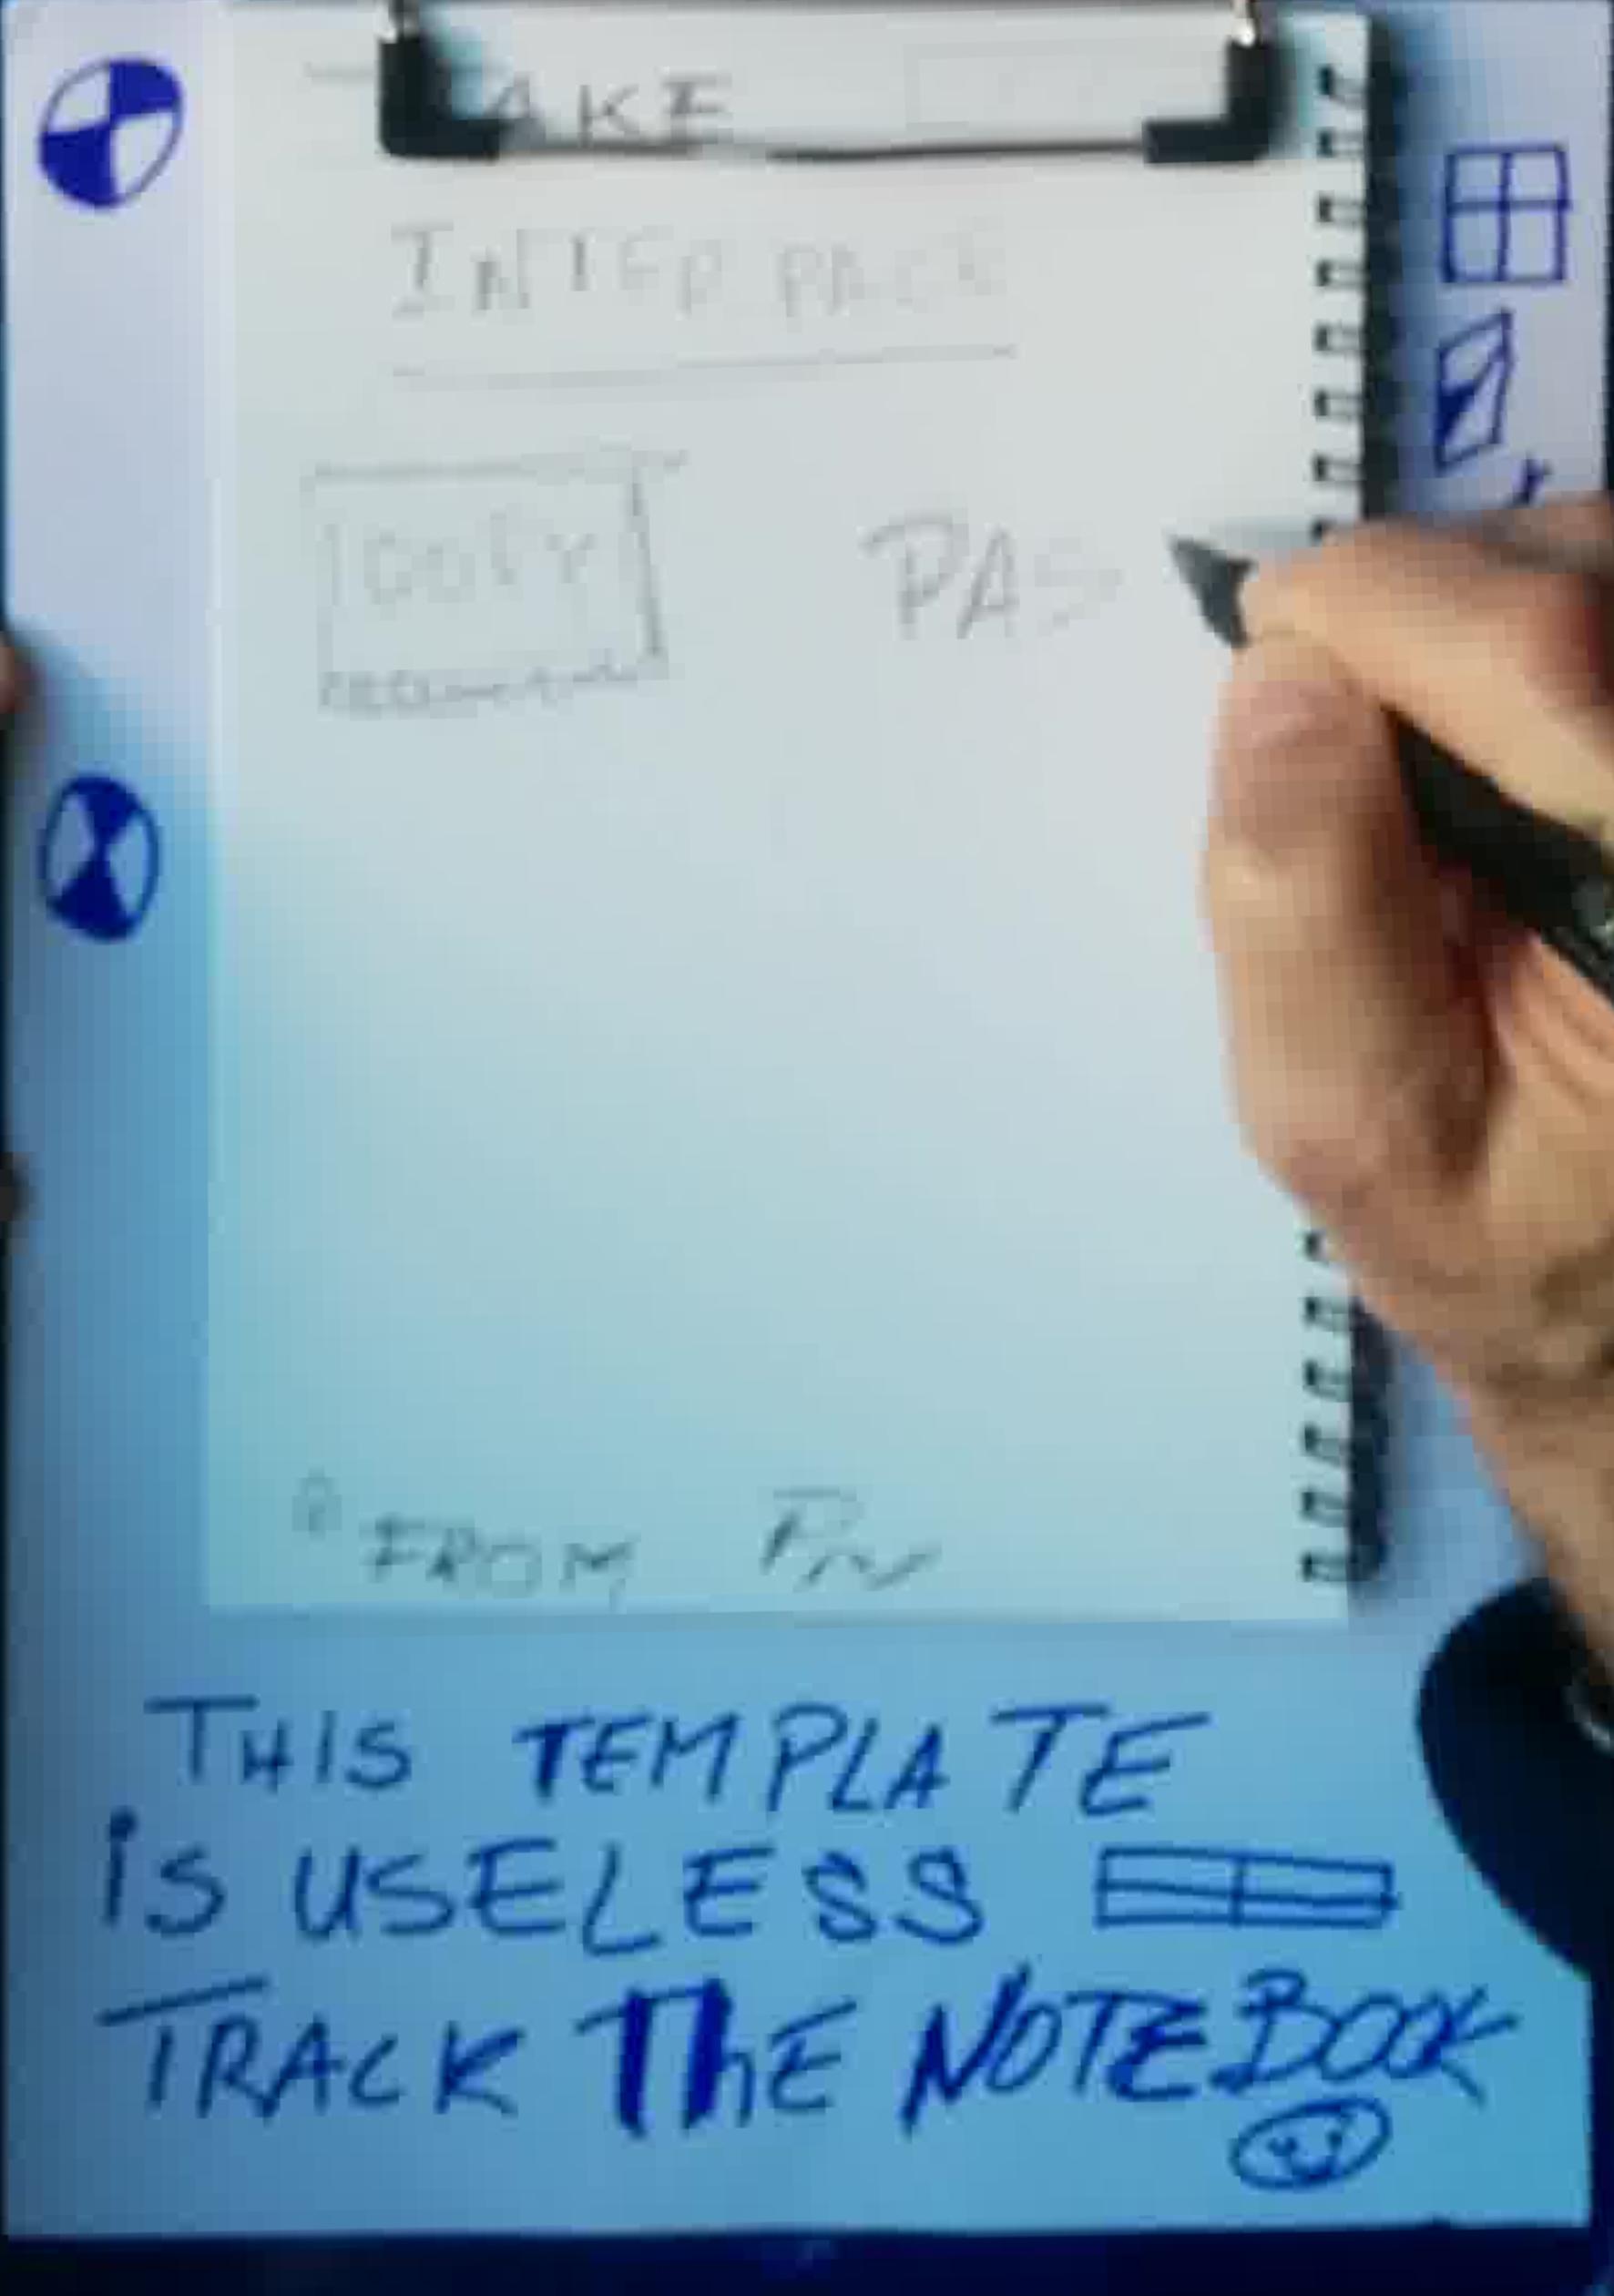 AKE
INTERPACE
COPY PAS
FROM
THIS TEMPLATE
is USELESS
TRACK ThE NOTEBOOK